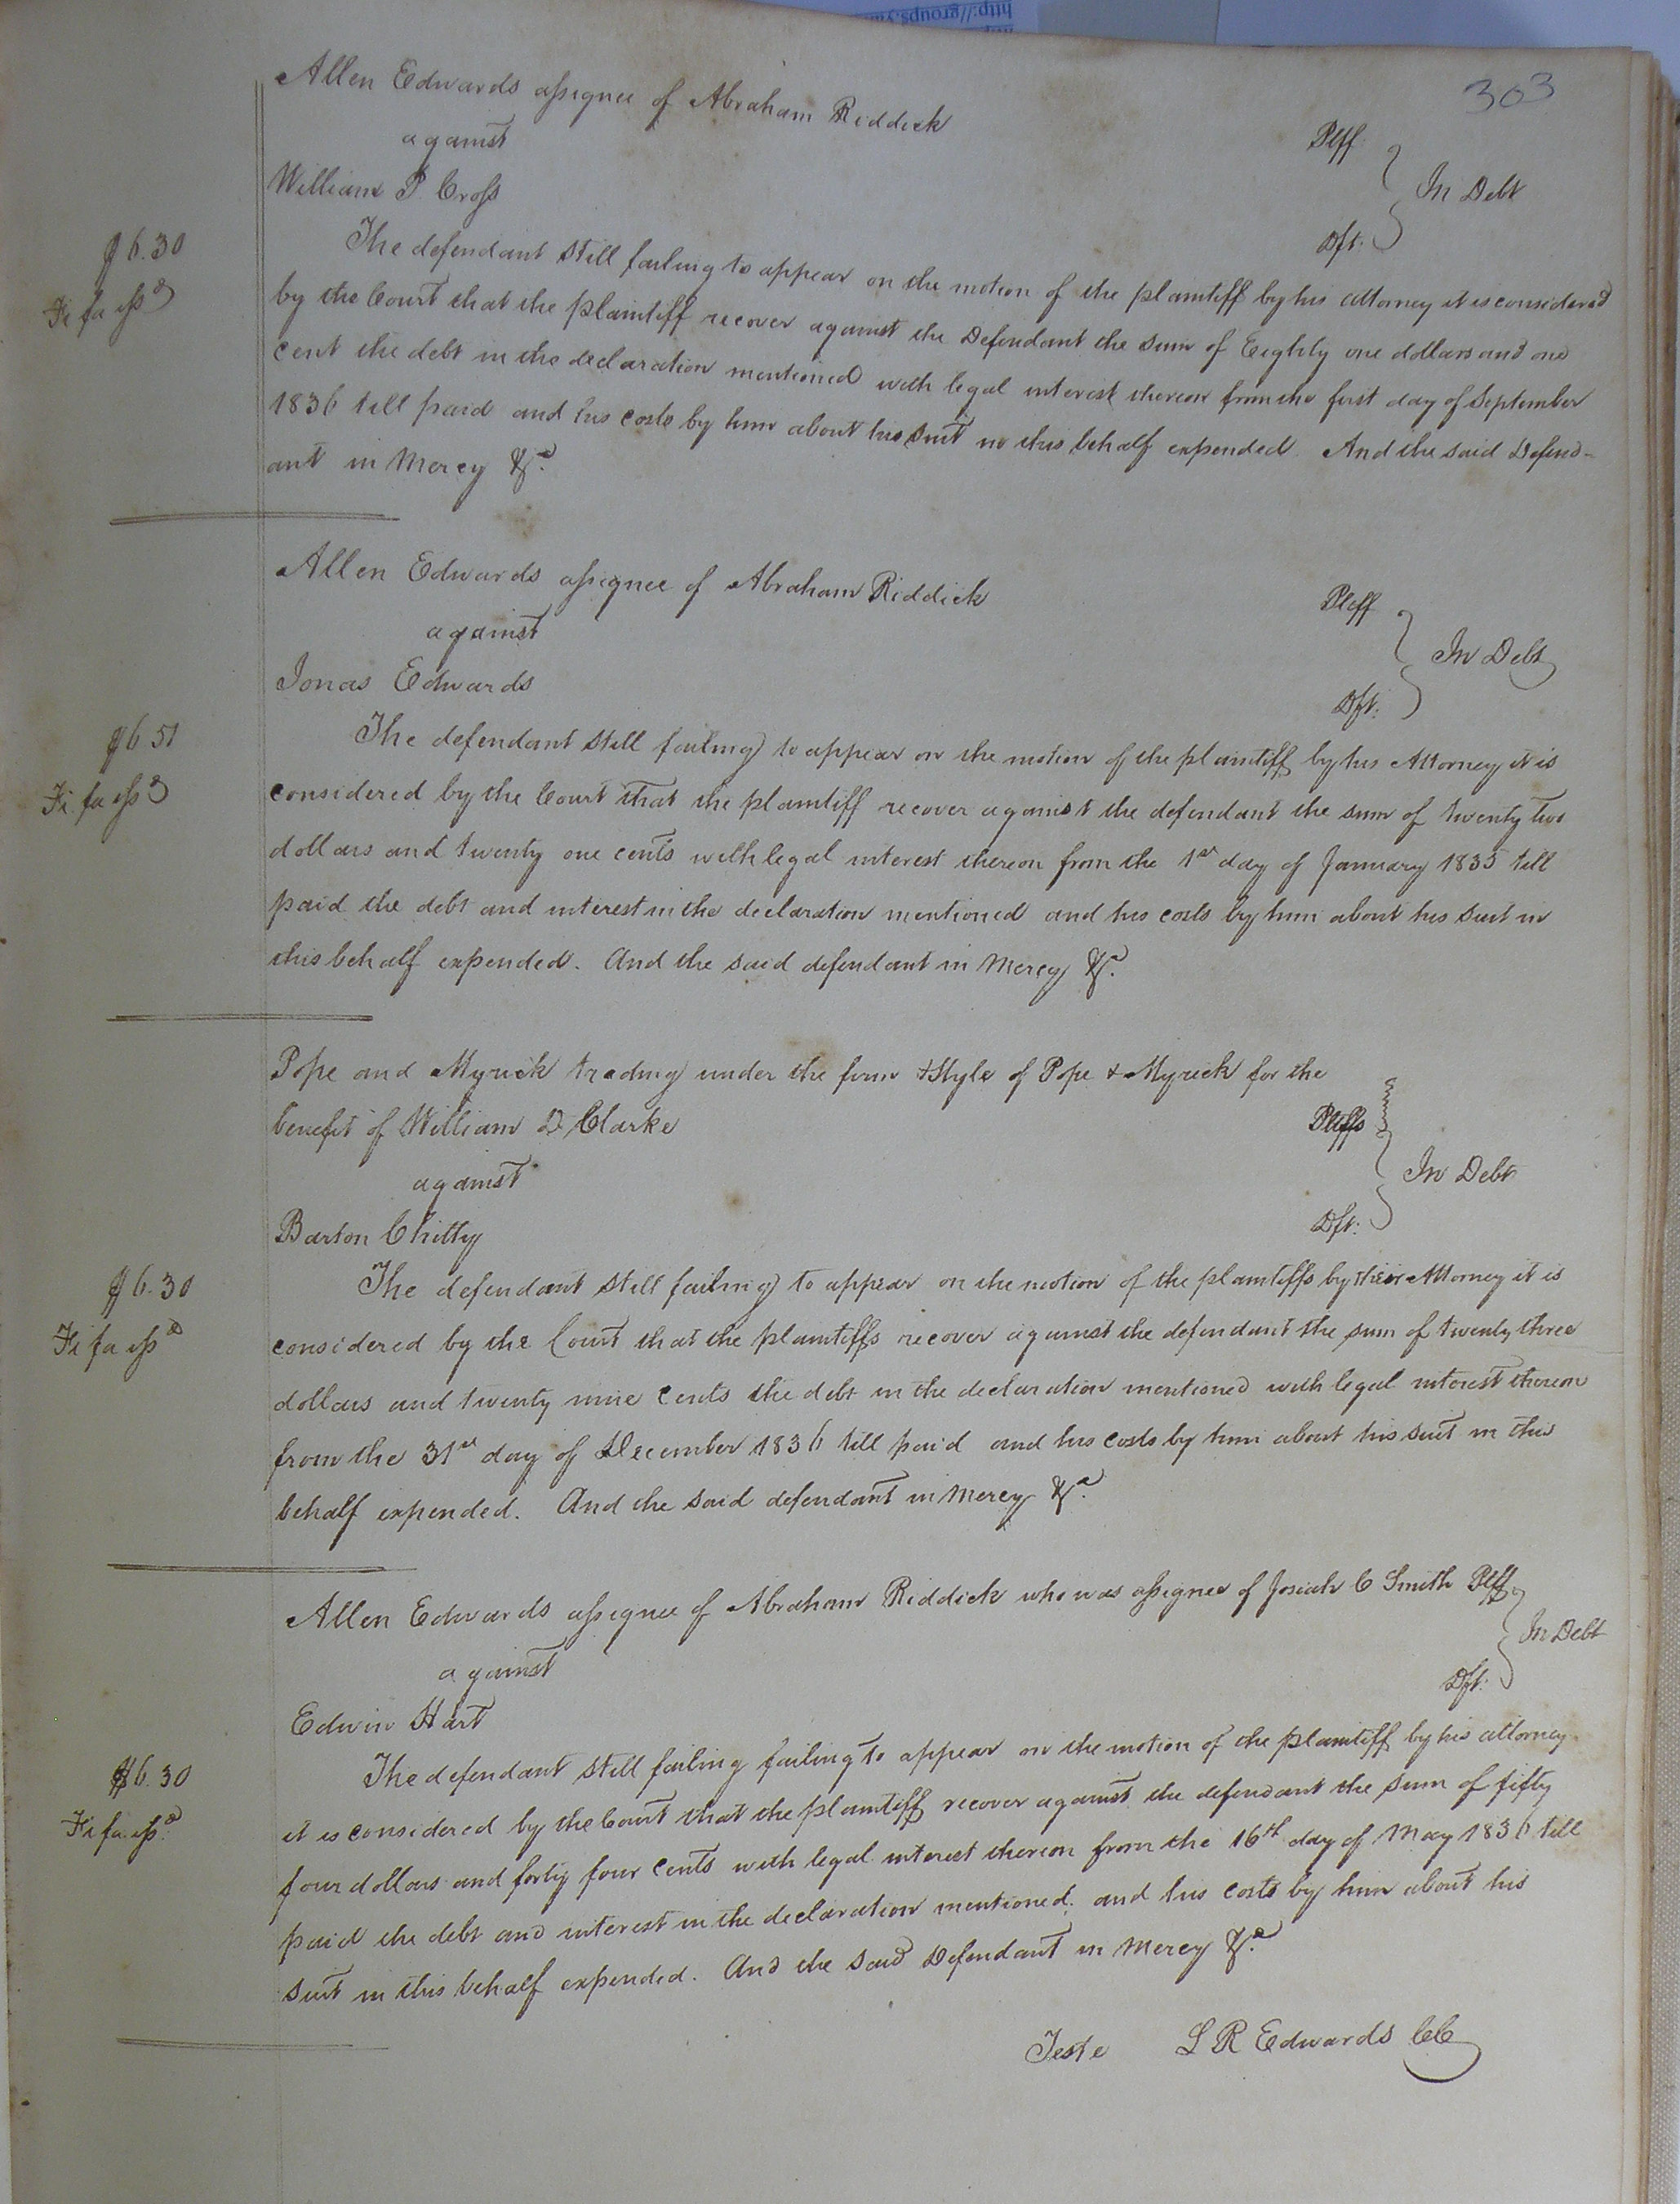 http://groups.y
303
Allen Edwards assignee of Abraham Riddick
Plff.
against
In Debt
William P. Cross
Dft.
$6.30
Fi fa issd
The defendant still failing to appear on the motion of the plaintiff by his attorney it is considered
by the Court that the plaintiff recover against the Defendant the sum of Eighty one dollars and one
cent the debt in the declaration mentioned with legal interest thereon from the first day of September
1836 till paid and his costs by him about his suit in this behalf expended. And the said Defend-
ant in Mercy &c.
Allen Edwards assignee of Abraham Riddick
Plff
against
In Debt
Jonas Edwards
Dft.
$6 51
Fi. fa issd
The defendant still failing to appear on the motion of the plaintiff by his Attorney it is
considered by the Court that the plaintiff recover against the defendant the sum of twenty two
dollars and twenty one cents with legal interest thereon from the 1st day of January 1835 till
paid the debt and interest in the declaration mentioned and his costs by him about his suit in
this behalf expended. And the said defendant in Mercy &c.
Pope and Myrick trading under the firm & Style of Pope & Myrick for the
benefit of William D Clarke
Plffs
against
In Debt
Barton Chitty
Dft.
$6.30
Fi fa issd
The defendant still failing to appear on the motion of the plaintiffs by their Attorney it is
considered by the Court that the plaintiffs recover against the defendant the sum of twenty three
dollars and twenty nine cents the debt in the declaration mentioned with legal interest thereon
from the 31st day of December 1836 till paid and his costs by him about his suit in this
behalf expended. And the said defendant in Mercy &c.
Allen Edwards assignee of Abraham Riddick who was assignee of Josiah C Smith Plff
against
In Debt
Edwin Hart
Dft.
$6.30
Fi fa issd.
The defendant still failing failing to appear on the motion of the plaintiff by his attorney
it is considered by the Court that the plaintiff recover against the defendant the sum of fifty
four dollars and forty four cents with legal interest thereon from the 16th day of May 1836 till
paid the debt and interest in the declaration mentioned, and his costs by him about his
suit in this behalf expended. And the said Defendant in Mercy &c.
Teste L R Edwards CC